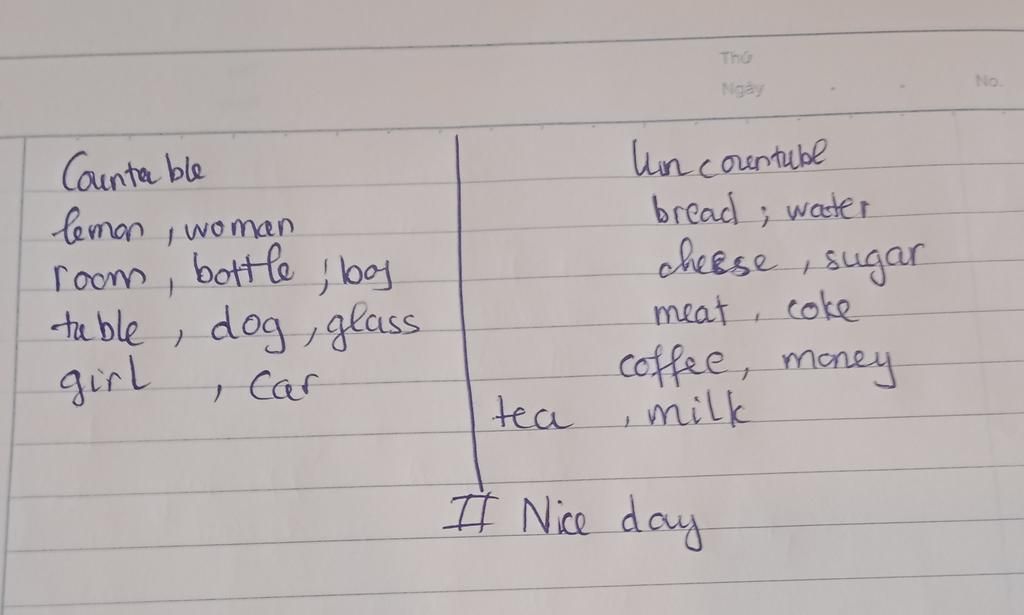 Thứ
Ngày
No.
Countable
lemon, woman
room, bottle; boy
table, dog, glass
girl, Car
Uncountuble
bread; water
cheese, sugar
meat, coke
coffee, money
tea, milk
II Nice day